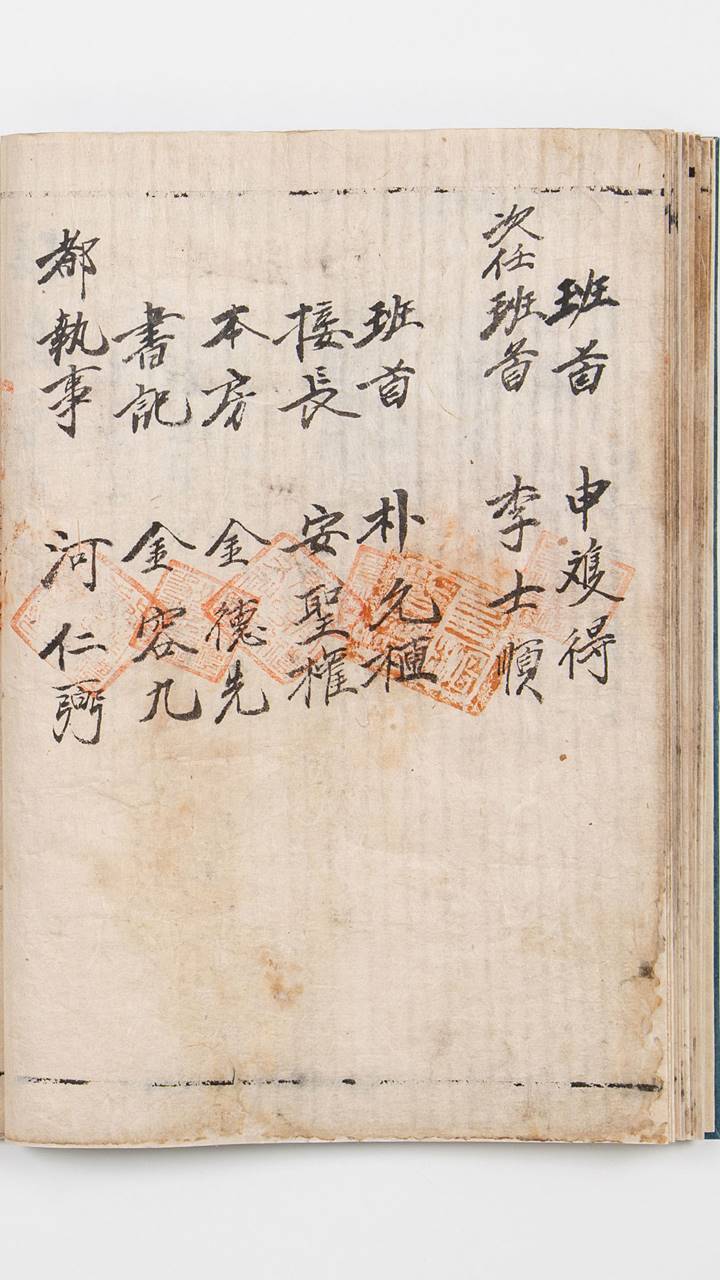 班首 申復得
次任班首 李士順
班首 朴允植
接長 安聖權
本房 金德先
書記 金容九
都執事 河仁弼